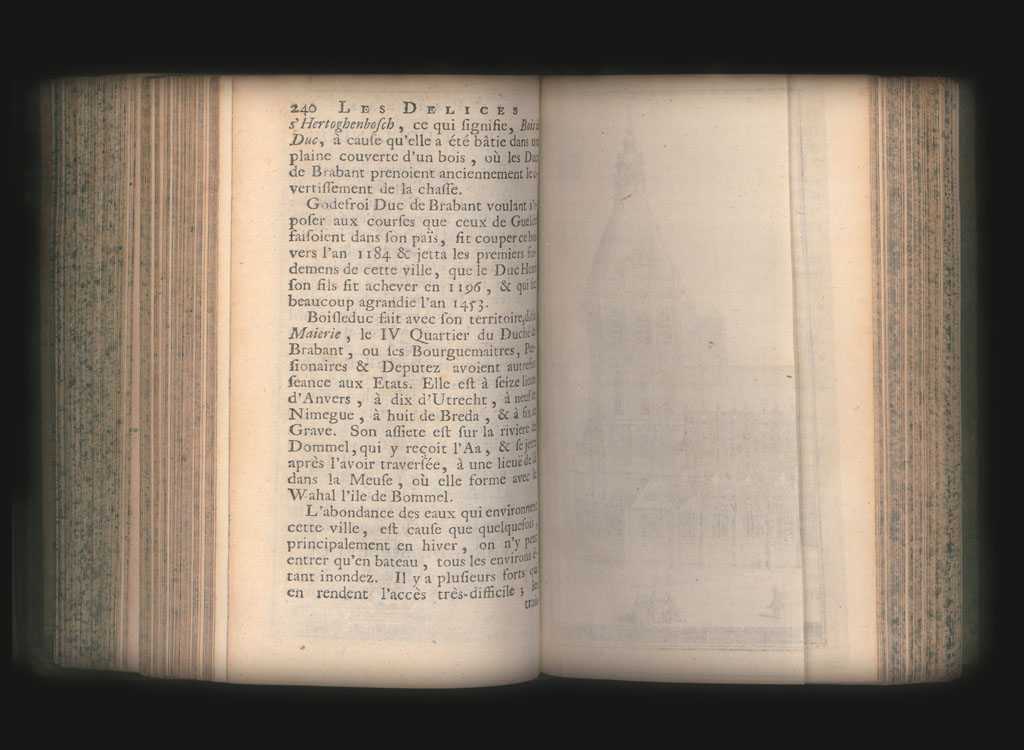 240 LES DELICES
s'Hertoghenboſch, ce qui ſignifie, Bois
Duc, à cauſe qu'elle a été bâtie dans
plaine couverte d'un bois, où les
de Brabant prenoient anciennement le
vertiſſement de la chaſſe.
Godefroi Duc de Brabant voulant
poſer aux courſes que ceux de
faiſoient dans ſon païs, fit couper ce
vers l'an 1184 & jetta les premiers
demens de cette ville, que le Duc
ſon fils fit achever en 1196, & qui
beaucoup agrandie l'an 1453.
Boiſleduc fait avec ſon territoire,
Maierie, le IV Quartier du Duché
Brabant, ou ſes Bourguemaitres,
ſionaires & Deputez avoient
ſeance aux Etats. Elle eſt à ſeize
d'Anvers, à dix d'Utrecht, à
Nimegue, à huit de Breda, & à ſix
Grave. Son aſſiete eſt ſur la riviere
Dommel, qui y reçoit l'Aa, & ſe
après l'avoir traverſée, à une lieuë
dans la Meuſe, où elle forme avec
Wahal l'ile de Bommel.
L'abondance des eaux qui
cette ville, eſt cauſe que quelquefois,
principalement en hiver, on n'y
entrer qu'en bateau, tous les environs
tant inondez. Il y a pluſieurs forts
en rendent l'accès très-difficile;